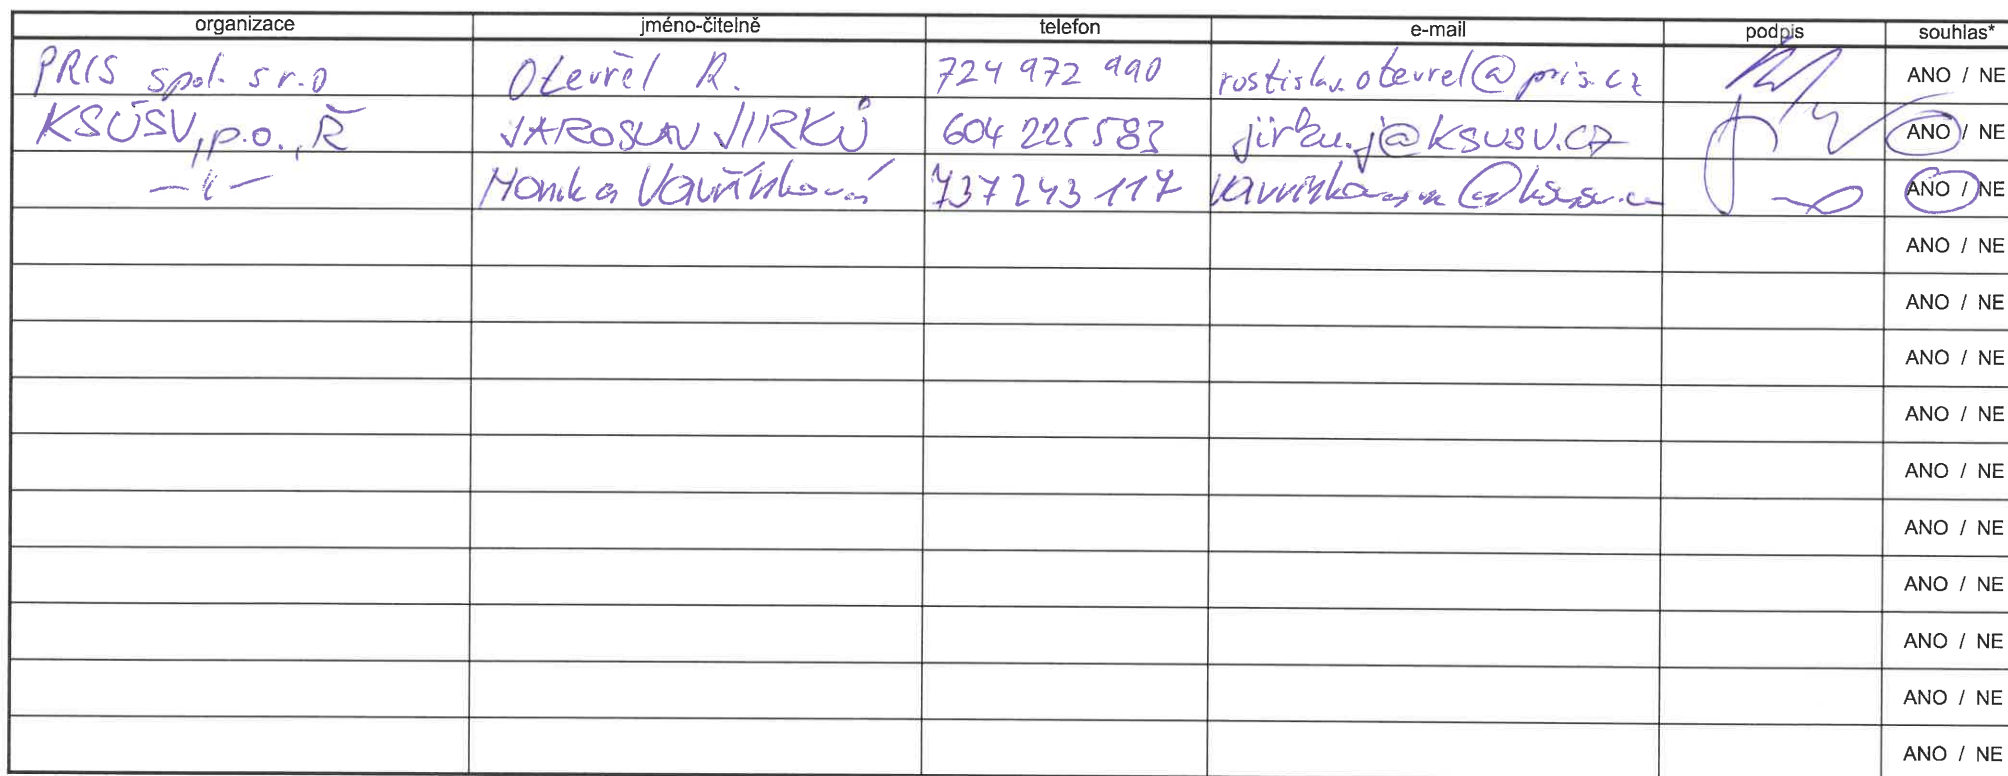 organizace jméno-čitelně telefon e-mail podpis souhlas*
PRIS spol. s r.o Otevřel R. 724 972 990 rostislav.otevrel@pris.cz ANO / NE
KSÚSV, p.o., Ř JAROSLAV JIRKŮ 604 225 583 jirku.j@ksusv.cz ANO / NE
—〃— Monika Vavřínková 737 243 117 ANO / NE
ANO / NE
ANO / NE
ANO / NE
ANO / NE
ANO / NE
ANO / NE
ANO / NE
ANO / NE
ANO / NE
ANO / NE